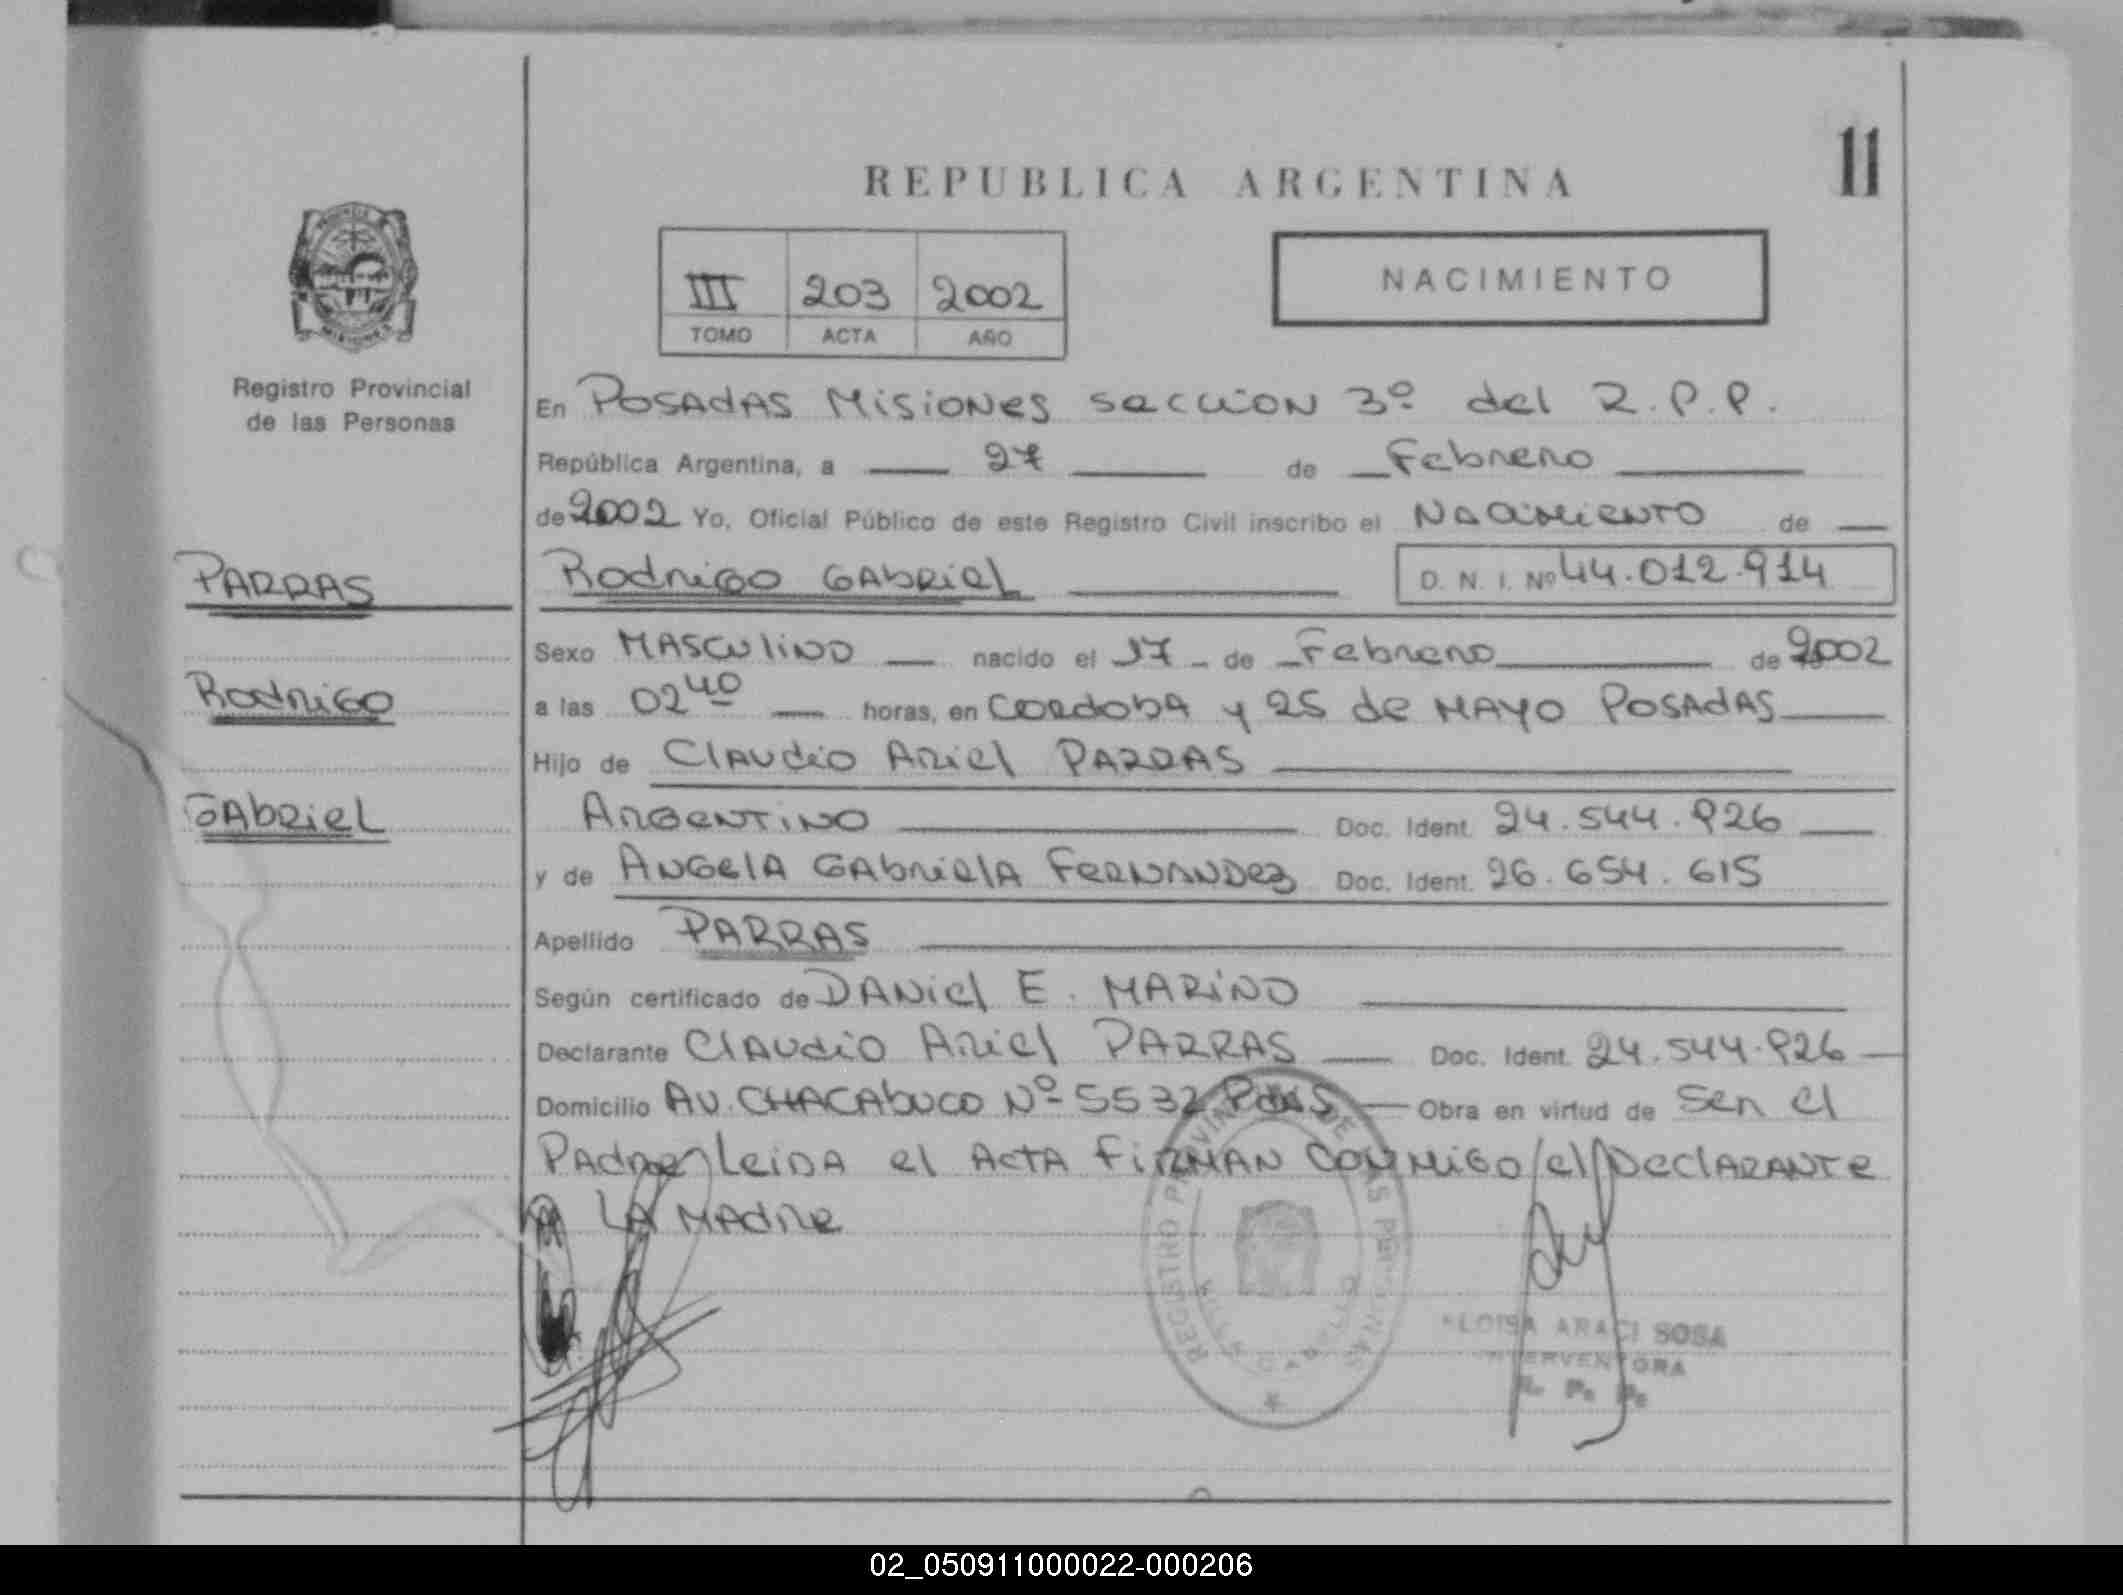 REPUBLICA ARGENTINA
11
III 203 2002
TOMO ACTA AÑO
NACIMIENTO
MISIONES
Registro Provincial
de las Personas
En POSADAS MISIONES SECCION 3º del R.P.P.
República Argentina, a 27 de Febrero
de 2002 Yo, Oficial Público de este Registro Civil inscribo el NACIMIENTO de
PARRAS
Rodrigo GABRIEL D. N. I. Nº 44.012.914
Sexo MASCULINO nacido el 17 de Febrero de 2002
Rodrigo
a las 02 40 horas, en CORDOBA y 25 de MAYO POSADAS
Hijo de CLAUDIO ARIEL PARRAS
GABRIEL
ARGENTINO Doc. Ident. 24.544.926
y de ANGELA GABRIELA FERNANDEZ Doc. Ident. 26.654.615
Apellido PARRAS
Según certificado de DANIEL E. MARINO
Declarante CLAUDIO ARIEL PARRAS Doc. Ident. 24.544.926
Domicilio AV. CHACABUCO Nº 5532 Pdas Obra en virtud de Ser el
PADRE LEIDA el ACTA FIRMAN CONMIGO el DECLARANTE
LA MADRE
REGISTRO PROVINCIAL DE LAS PERSONAS
VILLA CABELLO
ELOISA ARACI SOSA
INTERVENTORA
R. P. P.
02_050911000022-000206